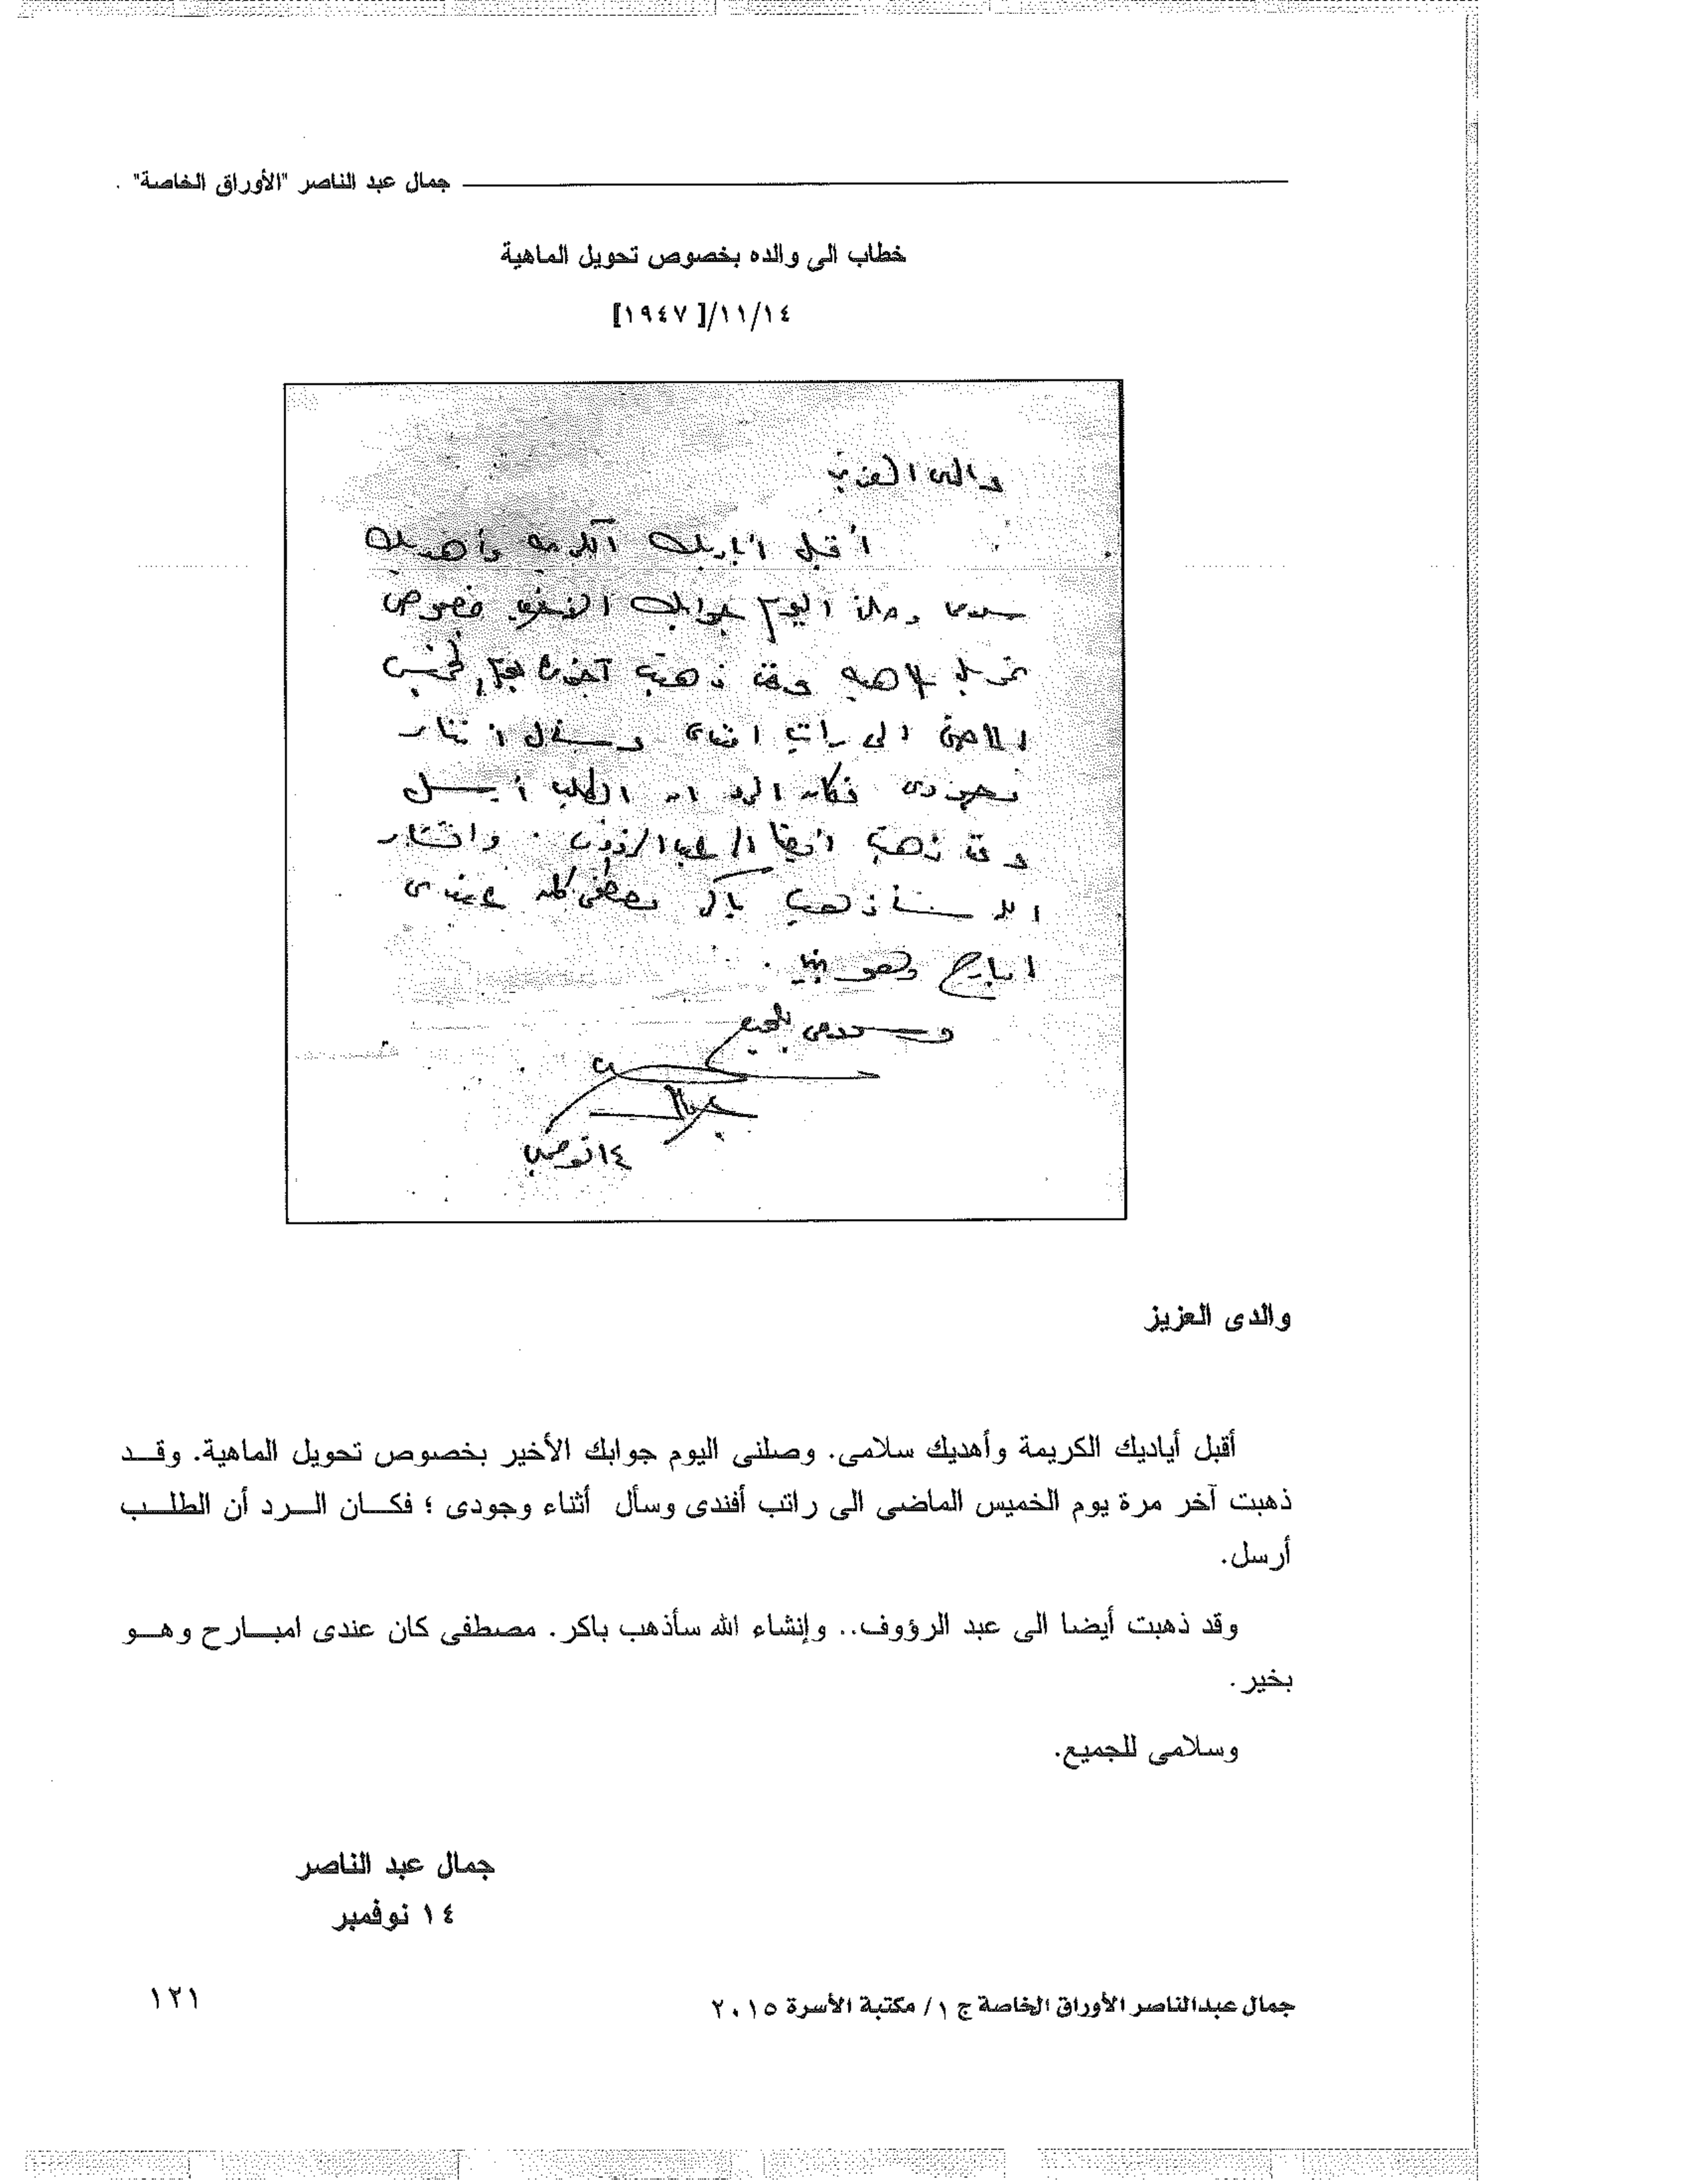 جمال عبد الناصر "الأوراق الخاصة"
خطاب الى والده بخصوص تحويل الماهية
١٤/١١/[١٩٤٧]
والدى العزيز
أقبل أياديك الكريمة وأهديك
سلامى وصلنى اليوم جوابك الأخير بخصوص
تحويل الماهية وقد ذهبت آخر مرة يوم الخميس
الماضى الى راتب افندى وسأل أثناء
وجودى فكان الرد ان الطلب أرسل
وقد ذهبت أيضا الى عبد الرؤوف . وانشاء
الله سأذهب باكر مصطفى كان عندى
امبارح وهو بخير .
وسلامى للجميع
جمال
١٤ نوفمبر
والدى العزيز
أقبل أياديك الكريمة وأهديك سلامى. وصلنى اليوم جوابك الأخير بخصوص تحويل الماهية. وقـــد
ذهبت آخر مرة يوم الخميس الماضى الى راتب أفندى وسأل أثناء وجودى ؛ فكـــان الـــرد أن الطلـــب
أرسل.
وقد ذهبت أيضا الى عبد الرؤوف.. وإنشاء الله سأذهب باكر. مصطفى كان عندى امبـــارح وهـــو
بخير.
وسلامى للجميع.
جمال عبد الناصر
١٤ نوفمبر
جمال عبدالناصر الأوراق الخاصة ج ١/ مكتبة الأسرة ٢٠١٥
١٢١